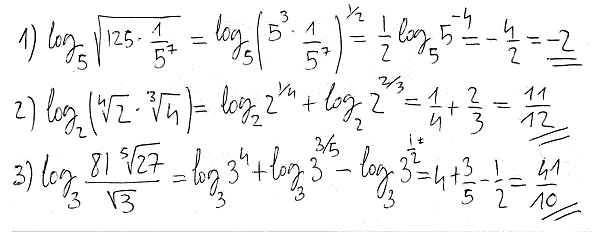 1) log₅ √(125 · 1/5⁷) = log₅ (5³ · 1/5⁷)^(1/2) = 1/2 log₅ 5⁻⁴ = -4/2 = -2
2) log₂ (⁴√2 · ³√4) = log₂ 2^(1/4) + log₂ 2^(2/3) = 1/4 + 2/3 = 11/12
3) log₃ (81 ⁵√27)/√3 = log₃ 3⁴ + log₃ 3^(3/5) - log₃ 3^(1/2) = 4 + 3/5 - 1/2 = 41/10